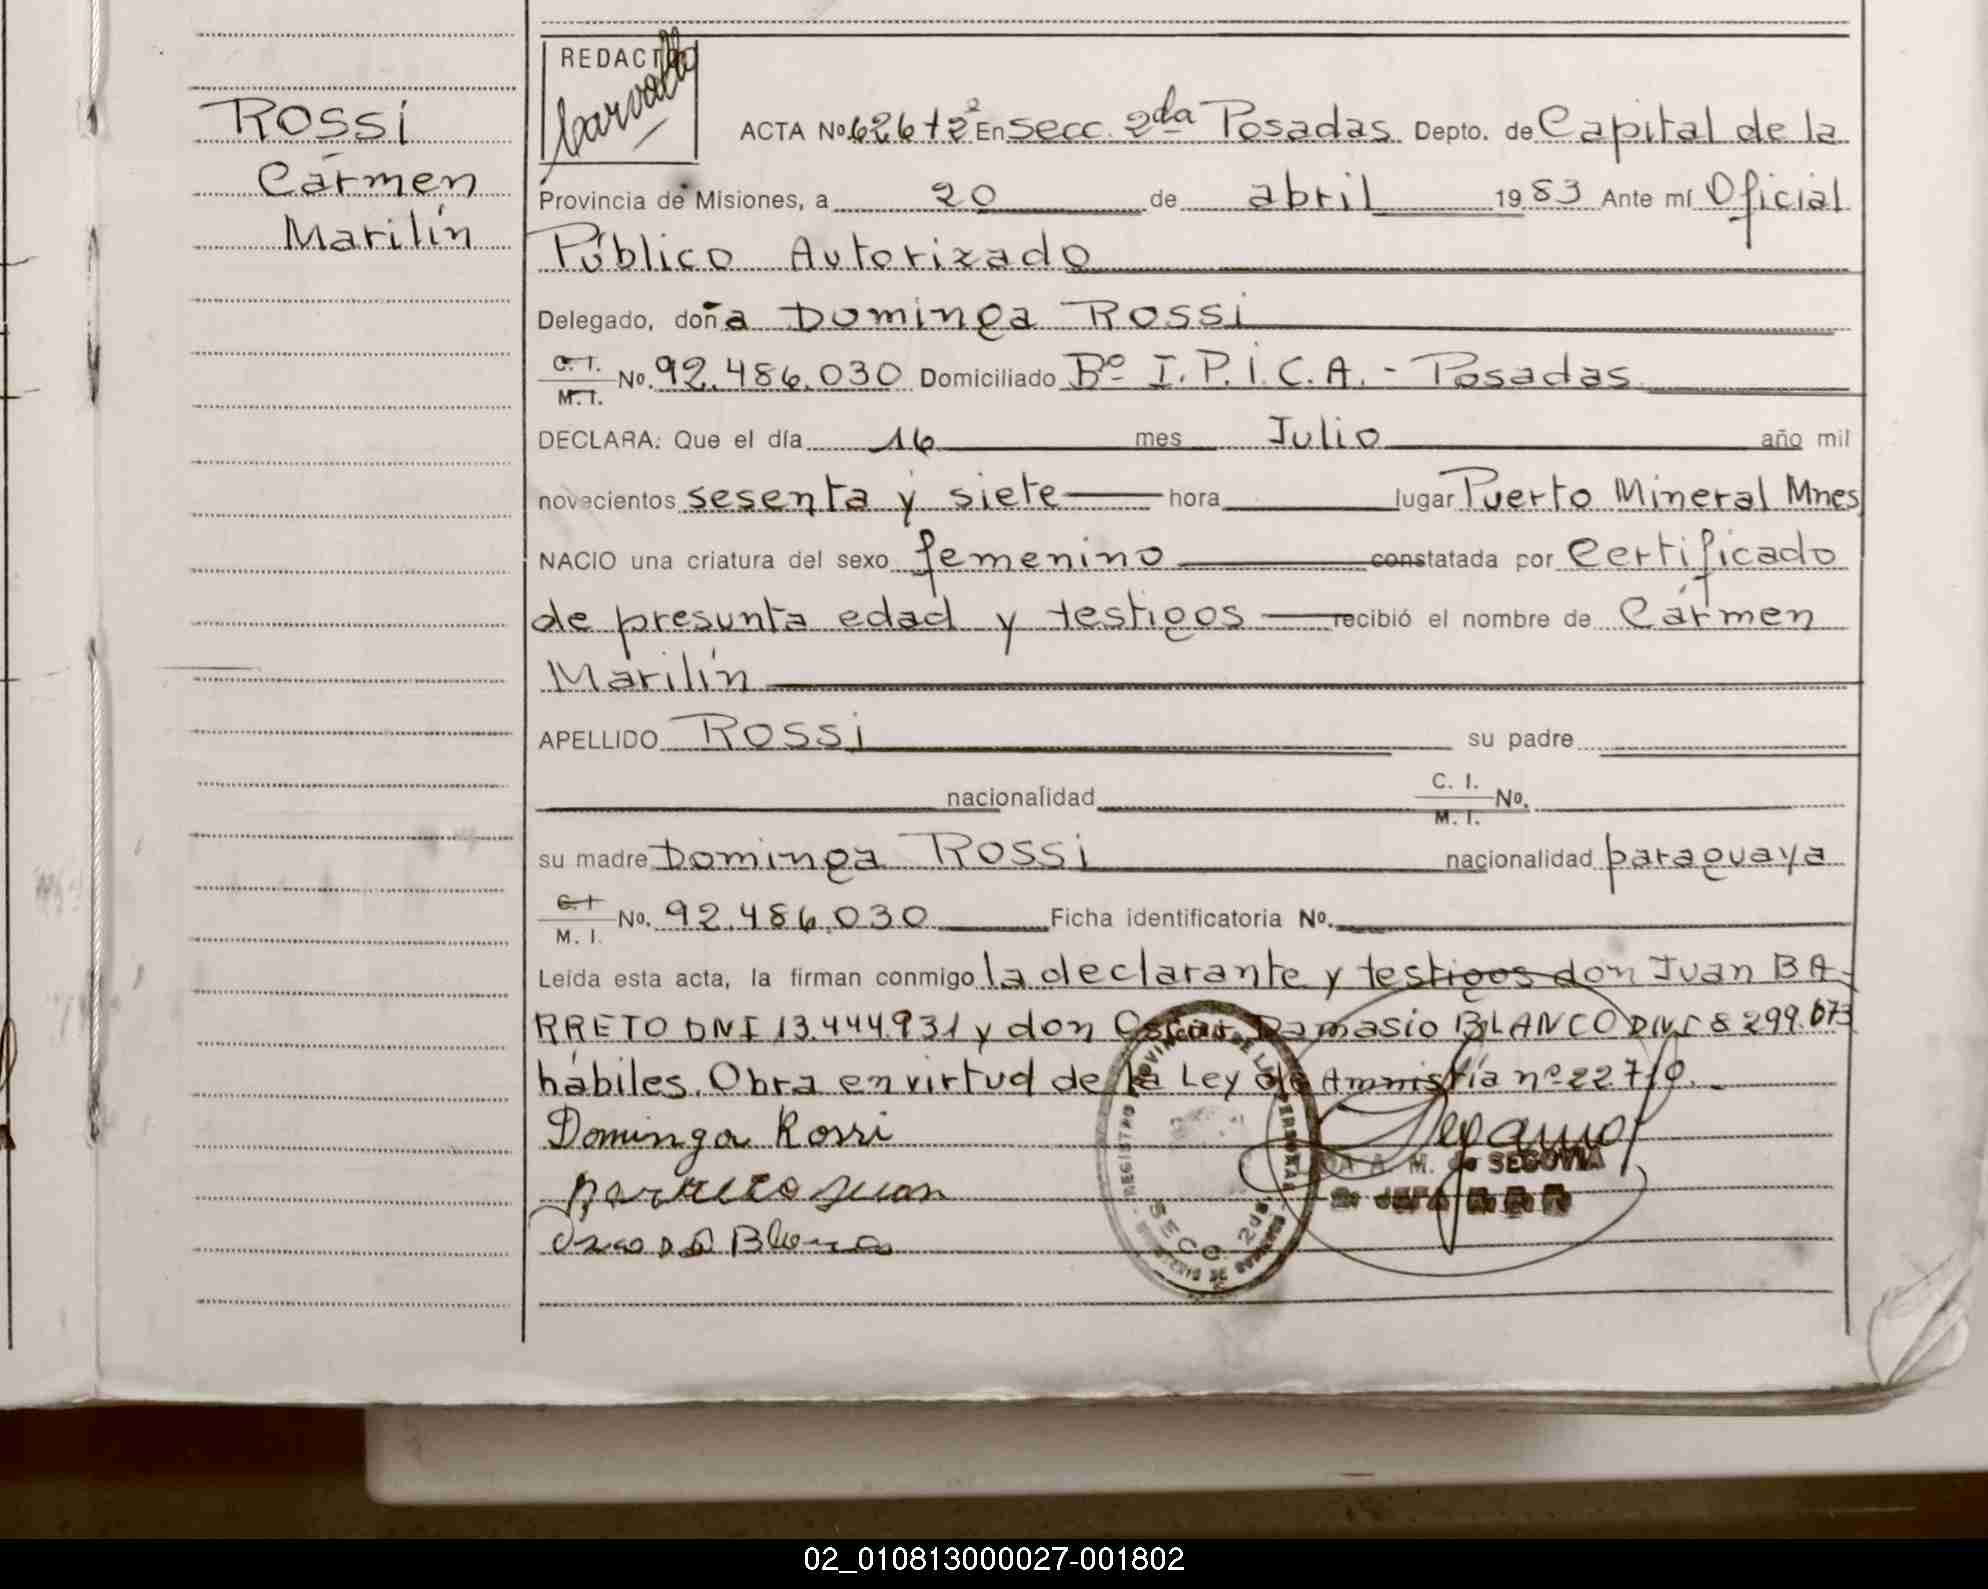 ROSSi
Cármen
Marilín
REDACTO
Carvallo
ACTA No. 626 tº2 En Secc. 2da Posadas Depto. de Capital de la
Provincia de Misiones, a 20 de abril 1983 Ante mí Oficial
Público Autorizado
Delegado, doña Dominga ROSSi
C. I. M. I. No. 92.486.030 Domiciliado Bº I.P.I.C.A. - Posadas
DECLARA: Que el día 16 mes Julio año mil
novecientos sesenta y siete hora lugar Puerto Mineral Mnes
NACIO una criatura del sexo femenino constatada por Certificado
de presunta edad y testigos recibió el nombre de Cármen
Marilín
APELLIDO ROSSi su padre
nacionalidad C. I. M. I. No.
su madre Dominga ROSSi nacionalidad paraguaya
C. I. M. I. No. 92.486.030 Ficha identificatoria No.
Leída esta acta, la firman conmigo la declarante y testigos don Juan BA-
RRETO DNI 13.444.931 y don Oscar Damasio BLANCO DNI 8299.073
hábiles. Obra en virtud de la Ley de Amnistía nº 22710.-
Dominga Rossi
Barreto Juan
Blanco
A. M. de SEGOVIA
JEFA
REGISTRO PROVINCIAL DE LAS PERSONAS
SECC. 2da.
MINISTERIO DE GOBIERNO
02_010813000027-001802